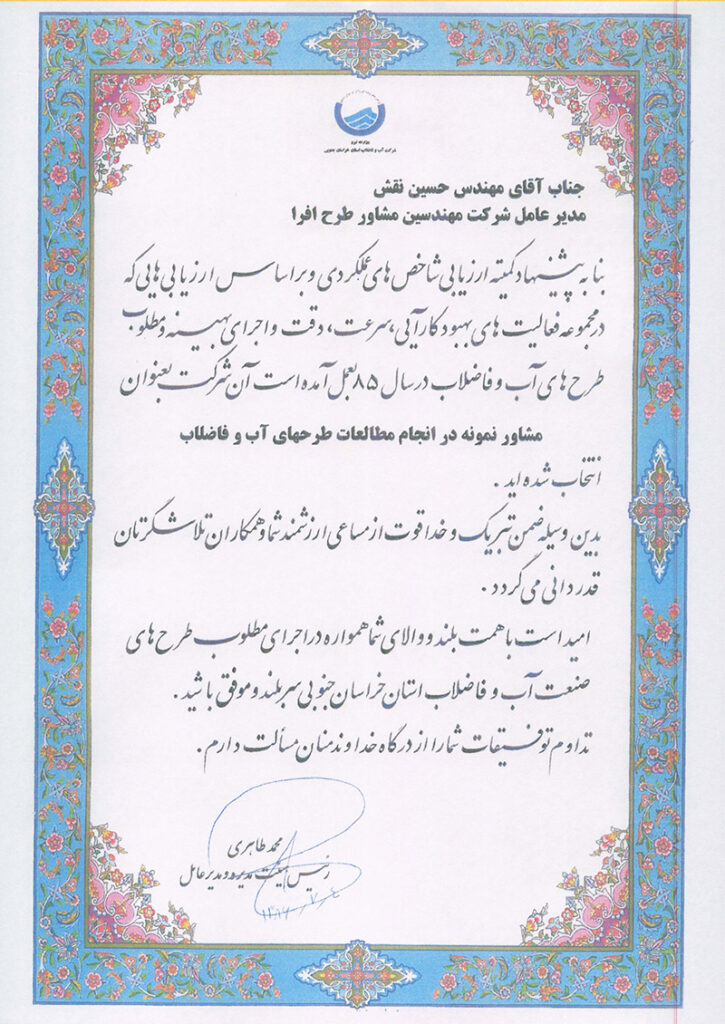 وزارت نیرو
شرکت آب و فاضلاب استان خراسان جنوبی
جناب آقای مهندس حسین نقش
مدیر عامل شرکت مهندسین مشاور طرح افرا
بنا به پیشنهاد کمیته ارزیابی شاخص های عملکردی و براساس ارزیابی هایی که
در مجموعه فعالیت های بهبود کارآیی، سرعت، دقت و اجرای بهینه و مطلوب
طرح های آب و فاضلاب در سال ۸۵ بعمل آمده است آن شرکت بعنوان
مشاور نمونه در انجام مطالعات طرحهای آب و فاضلاب
انتخاب شده اید .
بدین وسیله ضمن تبریک و خدا قوت از مساعی ارزشمند شما و همکاران تلاشگرتان
قدردانی می گردد .
امید است با همت بلند و والای شما همواره در اجرای مطلوب طرح های
صنعت آب و فاضلاب استان خراسان جنوبی سربلند و موفق باشید .
تداوم توفیقات شما را از درگاه خداوند منان مسألت دارم .
محمد طاهری
رئیس هیئت مدیره و مدیر عامل